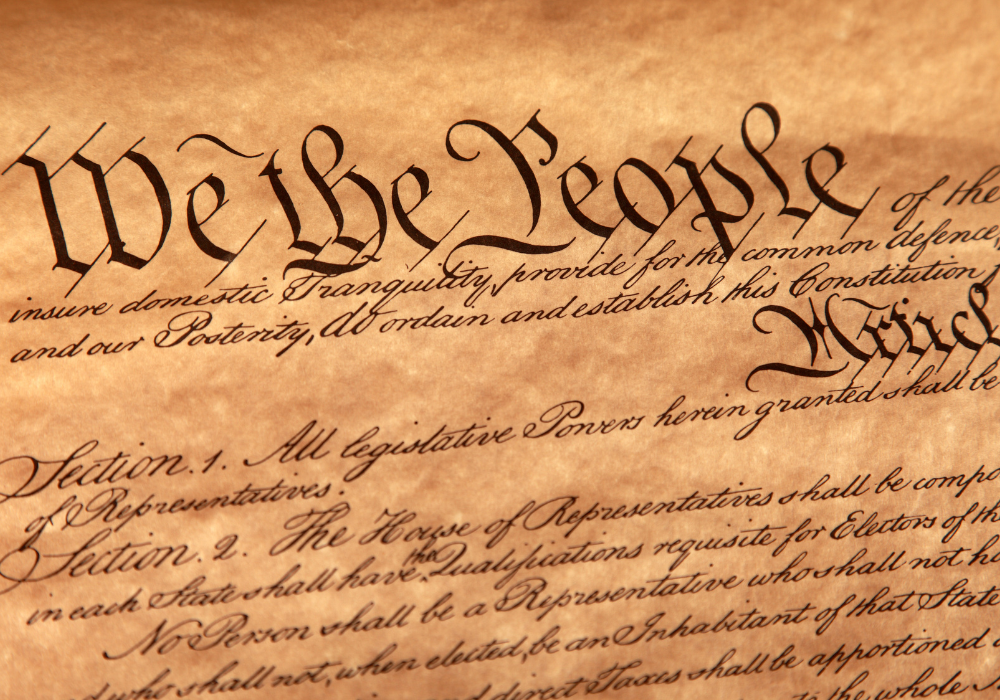 We the People of the
insure domestic Tranquility, provide for the common defence,
and our Posterity, do ordain and establish this Constitution
Articl
Section. 1. All legislative Powers herein granted shall be
of Representatives.
Section. 2. The House of Representatives shall be compo
in each State shall have the Qualifications requisite for Electors of th
No Person shall be a Representative who shall not h
who shall not, when elected, be an Inhabitant of that State
and direct Taxes shall be apportioned
the whole